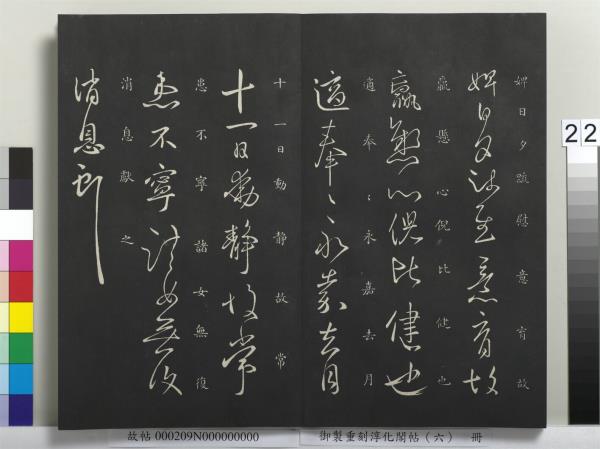 婢日夕疏慰意育故
婢日夕疏慰意育故
羸懸心倪比健也
羸懸心倪比健也
適奉〻永嘉去月
適奉〻永嘉去月
十一日動靜故常
十一日動靜故常
患不寧諸女無復
患不寧諸女無復
消息獻之
消息獻之
22
御製重刻淳化閣帖（六） 冊
故帖 000209N000000000